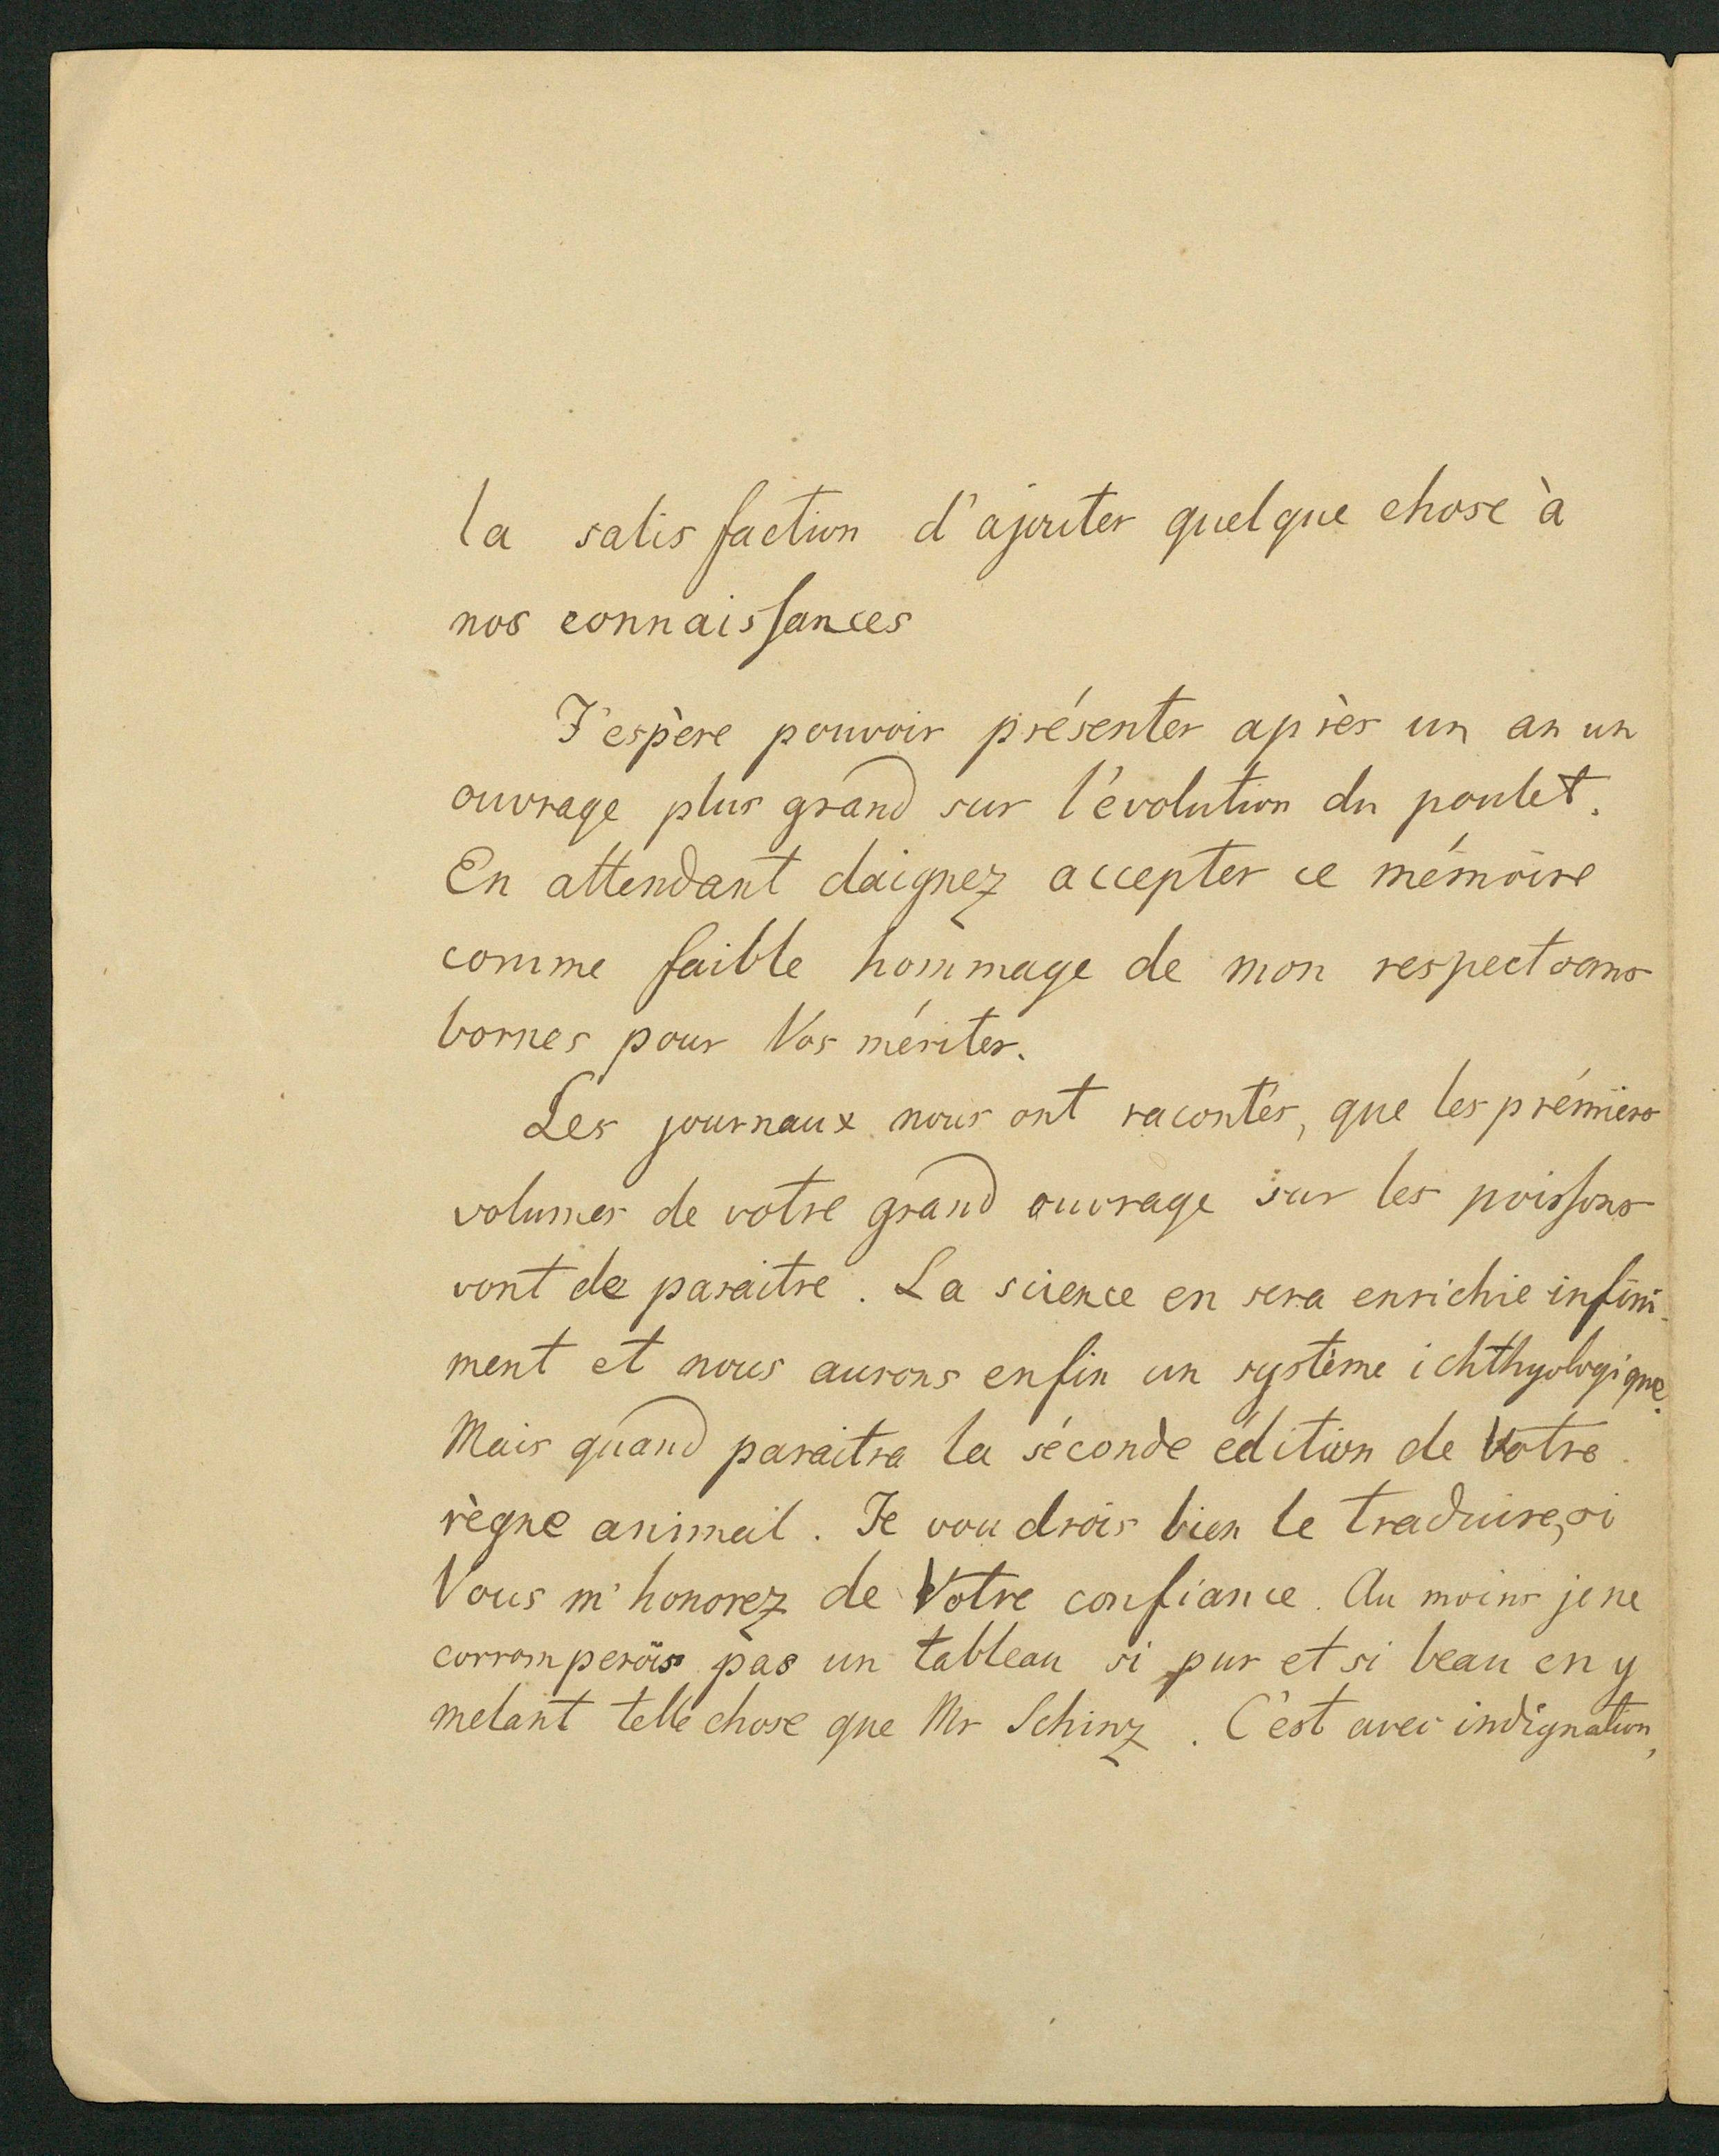 la satisfaction d'ajouter quelque chose à
nos connaissances
J'espère pouvoir présenter après un an un
ouvrage plus grand sur l'évolution du poulet.
En attendant daignez accepter ce mémoire
comme faible hommage de mon respect sans
bornes pour Vos mérites.
Les journaux nous ont racontés, que les prémiers
volumes de votre grand ouvrage sur les poissons
vont de paraitre. La science en sera enrichie infini-
ment et nous aurons enfin un système ichthyologique.
Mais quand paraitra la séconde édition de Votre
règne animal. Je voudrois bien le traduire, si
Vous m'honorez de Votre confiance. Au moins je ne
corromperois pas un tableau si pur et si beau en y
melant telle chose que Mr Schinz. C'est avec indignation,